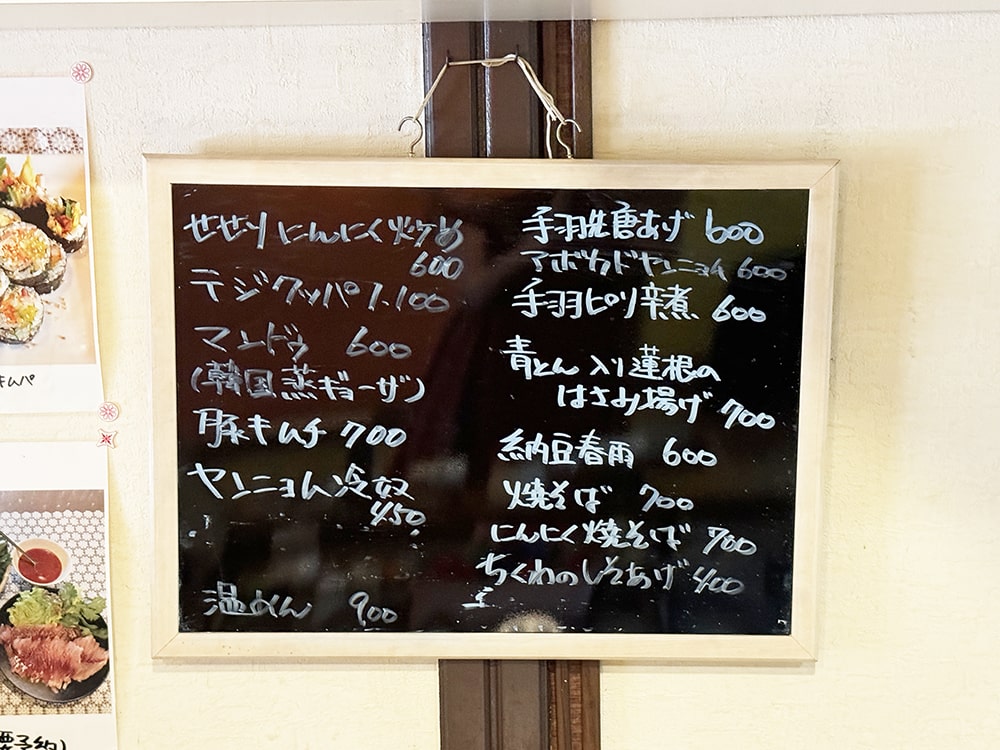 せせりにんにく炒め
600
テジクッパ 1.100
マンドゥ 600
(韓国蒸ギョーザ)
豚キムチ 700
ヤンニョム冷奴
450
温めん 900
手羽先唐あげ 600
アボカドヤンニョム 600
手羽ピリ辛煮 600
青とん入り蓮根の
はさみ揚げ 700
納豆春雨 600
焼そば 700
にんにく焼そば 700
ちくわのしそあげ 400
キムパ
要予約)